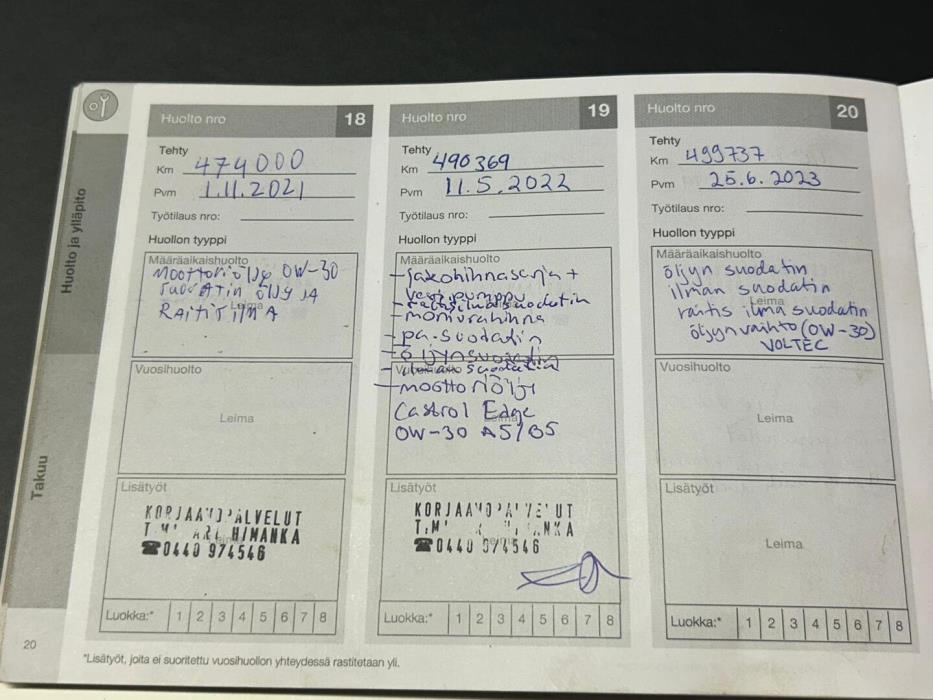 Huolto ja ylläpito
Takuu
Huolto nro 18
Tehty
Km 474000
Pvm 1.11.2021
Työtilaus nro:
Huollon tyyppi
Määräaikaishuolto
Moottoriöljy OW-30
suodatin öljy ja
Raitis ilma
Leima
Vuosihuolto
Leima
Lisätyöt
KORJAAMOPALVELUT
T.M HIMANKA
☎0440 974546
Luokka:* 1 2 3 4 5 6 7 8
Huolto nro 19
Tehty
Km 490369
Pvm 11.5.2022
Työtilaus nro:
Huollon tyyppi
Määräaikaishuolto
- Jakohihnasarja +
Vesipumppu
- raitisilmasuodatin
- monиurahihna
- pa-suodatin
- öljynsuodatin
- ilmansuodatin
Vuosihuolto
- moottoriöljy
Castrol Edge
OW-30 A5/B5
Lisätyöt
KORJAAMOPALVELUT
T.M
☎0440 974546
Luokka:* 1 2 3 4 5 6 7 8
Huolto nro 20
Tehty
Km 499737
Pvm 25.6.2023
Työtilaus nro:
Huollon tyyppi
Määräaikaishuolto
öljyn suodatin
ilman suodatin
Leima
raitis ilma suodatin
öljynvaihto (OW-30)
VOLTEC
Vuosihuolto
Leima
Lisätyöt
Leima
Luokka:* 1 2 3 4 5 6 7 8
20
*Lisätyöt, joita ei suoritettu vuosihuollon yhteydessä rastitetaan yli.